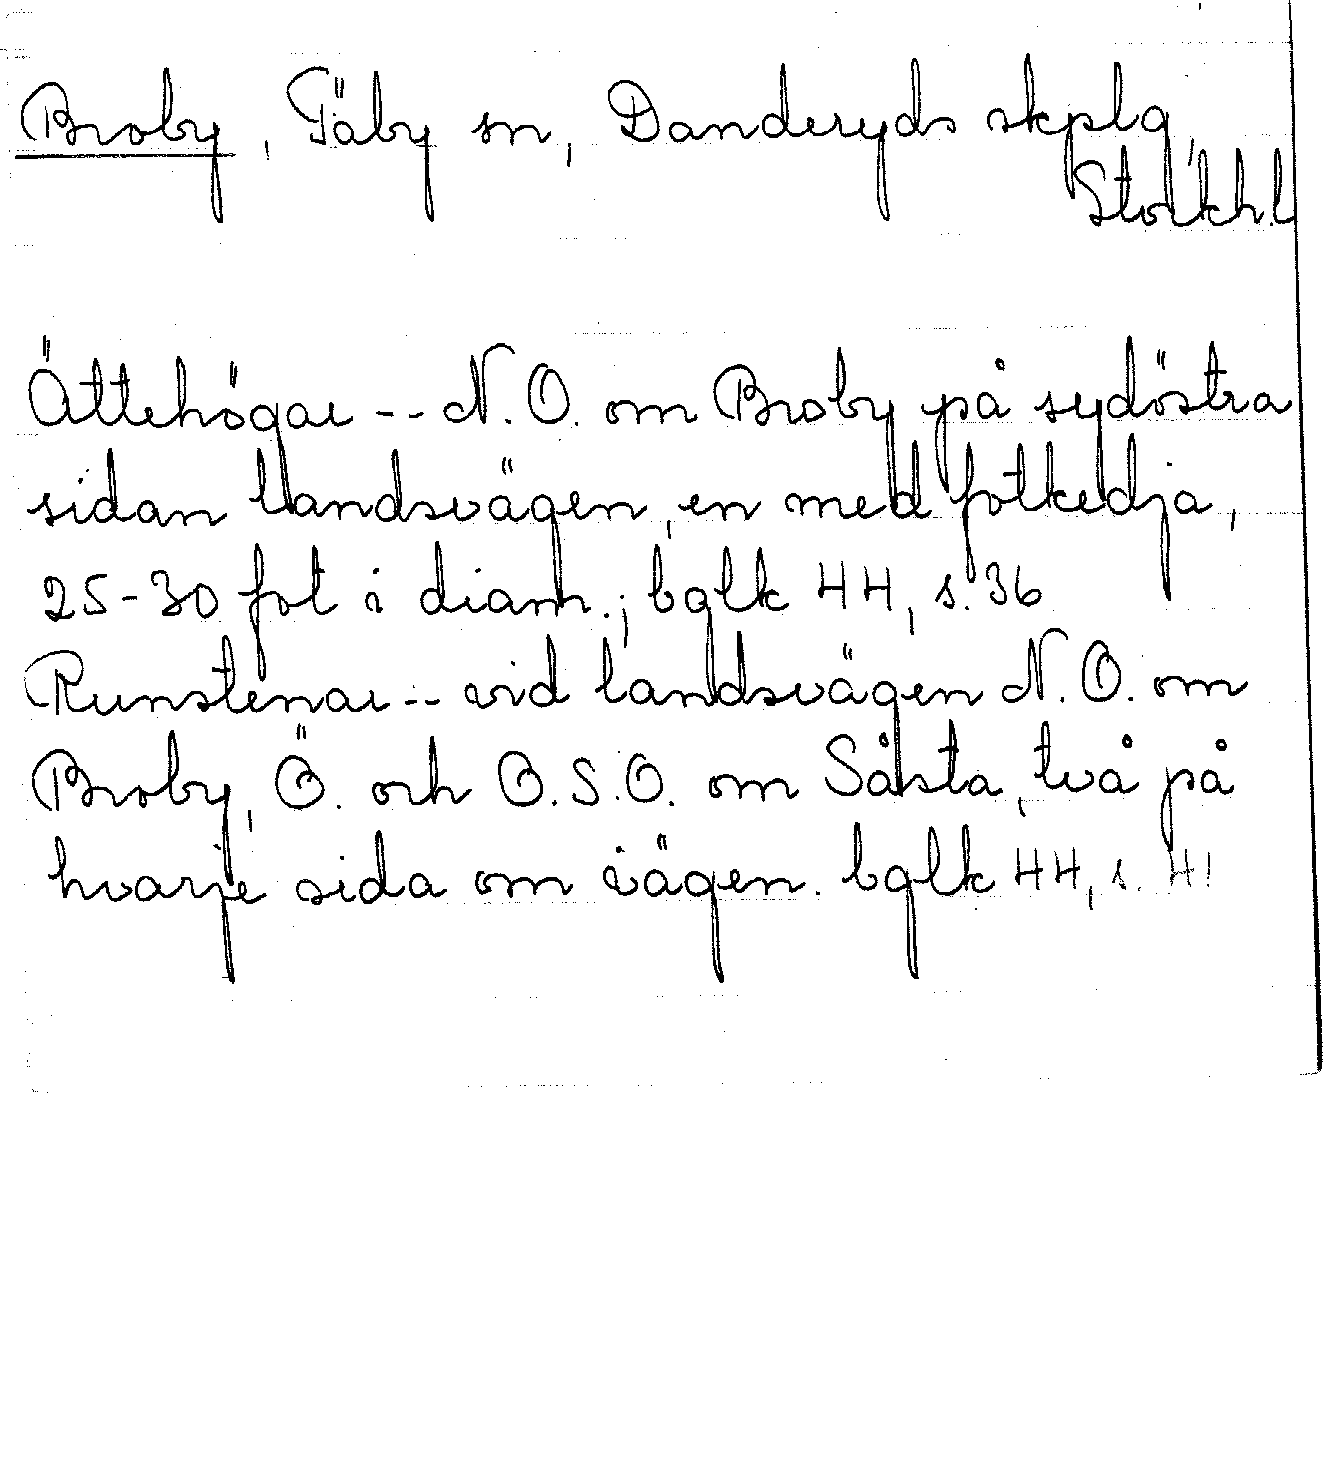 Broby, Täby sn, Danderyds skplg,
Stockh.l
Ättehögar -- N.O. om Broby på sydöstra
sidan landsvägen, en med fotkedja,
25-30 fot i diam.; bglk 44, s. 36
Runstenar -- vid landsvägen N.O. om
Broby, Ö. och O.S.O. om Såsta, två på
hvarje sida om vägen. bglk 44, s. 41